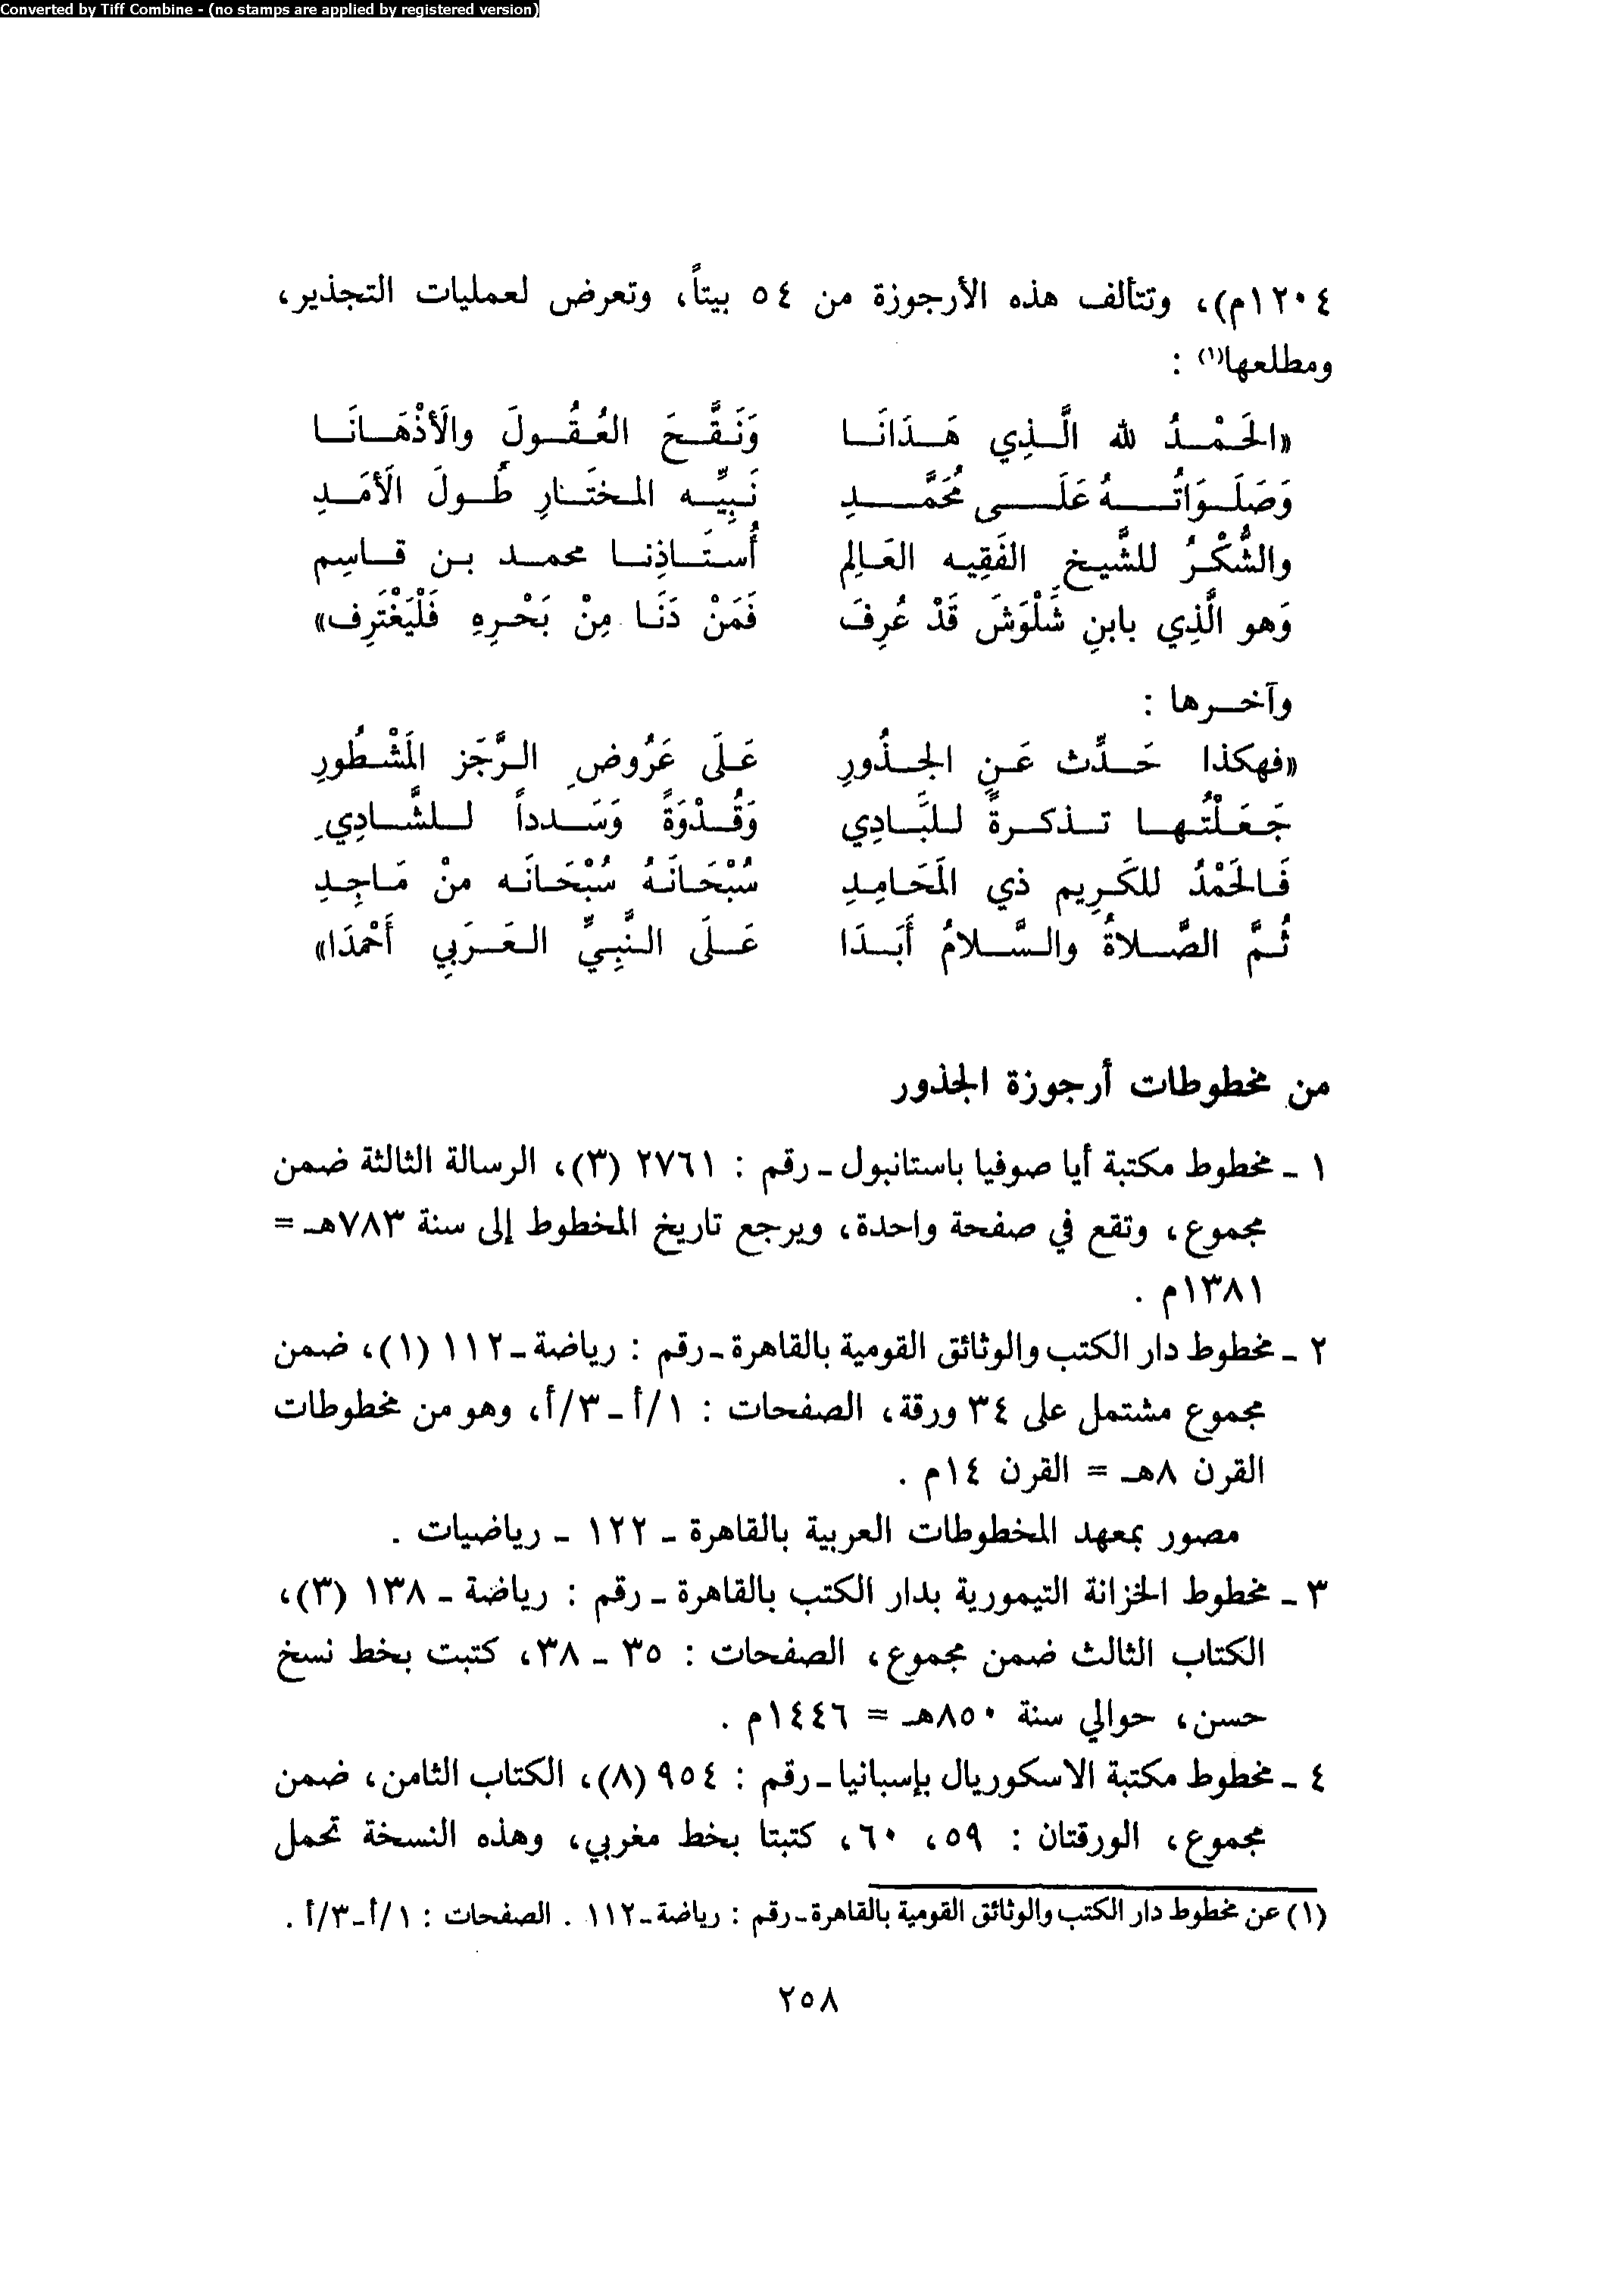 Converted by Tiff Combine - (no stamps are applied by registered version)
١٢٠٤م)، وتتألف هذه الأرجوزة من ٥٤ بيتاً، وتعرض لعمليات التجذير،
ومطلعها(١) :
«الحَمْـدُ لله الَّـذِي هَـدَانَـا وَنَـقَّـحَ العُـقُـولَ والَأذْهَـانَـا
وَصَلَـوَاتُـهُ عَلَـى مُحَمَّـدِ نَـبِيِّـه المـختَـارِ طُـولَ الَأمَـدِ
والشُّكْـرُ للشَّيـخِ الفَقِيـه العَـالِمِ أُستَـاذِنـا محمـد بـن قـاسِم
وَهو الَّذِي بابنِ شَلْوَشَ قَدْ عُرِفَ فَمَنْ دَنَـا مِنْ بَحْـرِهِ فَلْيَغْتَرِف»
وآخـرها :
«فهكذا حَـدِّث عَـنِ الجـذُورِ عَـلَى عَرُوضِ الـرَّجَز المَشْـطُورِ
جَـعَـلْتُـهـا تـذكـرةً لـلبَّـادِي وَقُـدْوَةً وَسَـدداً لـلشَّـادِي
فَـالحَمْدُ للكَـرِيم ذي المَحَـامِـدِ سُبْحَـانَـهُ سُبْحَـانَـه منْ مَـاجِـدِ
ثُـمَّ الصَّـلاةُ والسَّـلامُ أَبَـدَا عَـلَى الـنَّبِـيِّ الـعَـرَبي أَحْمدَا»
من مخطوطات أرجوزة الجذور
١ ـ مخطوط مكتبة أيا صوفيا باستانبول ـ رقم : ٢٧٦١ (٣)، الرسالة الثالثة ضمن
مجموع، وتقع في صفحة واحدة، ويرجع تاريخ المخطوط إلى سنة ٧٨٣هـ =
١٣٨١م .
٢ ـ مخطوط دار الكتب والوثائق القومية بالقاهرة ـ رقم : رياضة ـ ١١٢ (١)، ضمن
مجموع مشتمل على ٣٤ ورقة، الصفحات : ١/أ ـ ٣/أ، وهو من مخطوطات
القرن ٨هـ = القرن ١٤م .
مصور بمعهد المخطوطات العربية بالقاهرة ـ ١٢٢ ـ رياضيات .
٣ ـ مخطوط الخزانة التيمورية بدار الكتب بالقاهرة ـ رقم : رياضة ـ ١٣٨ (٣)،
الكتاب الثالث ضمن مجموع، الصفحات : ٣٥ ـ ٣٨، كتبت بخط نسخ
حسن، حوالي سنة ٨٥٠هـ = ١٤٤٦م .
٤ ـ مخطوط مكتبة الاسكوريال بإسبانيا ـ رقم : ٩٥٤ (٨)، الكتاب الثامن، ضمن
مجموع، الورقتان : ٥٩، ٦٠، كتبتا بخط مغربي، وهذه النسخة تحمل
(١) عن مخطوط دار الكتب والوثائق القومية بالقاهرة ـ رقم : رياضة ـ ١١٢ . الصفحات : ١/أ ـ ٣/أ .
٢٥٨